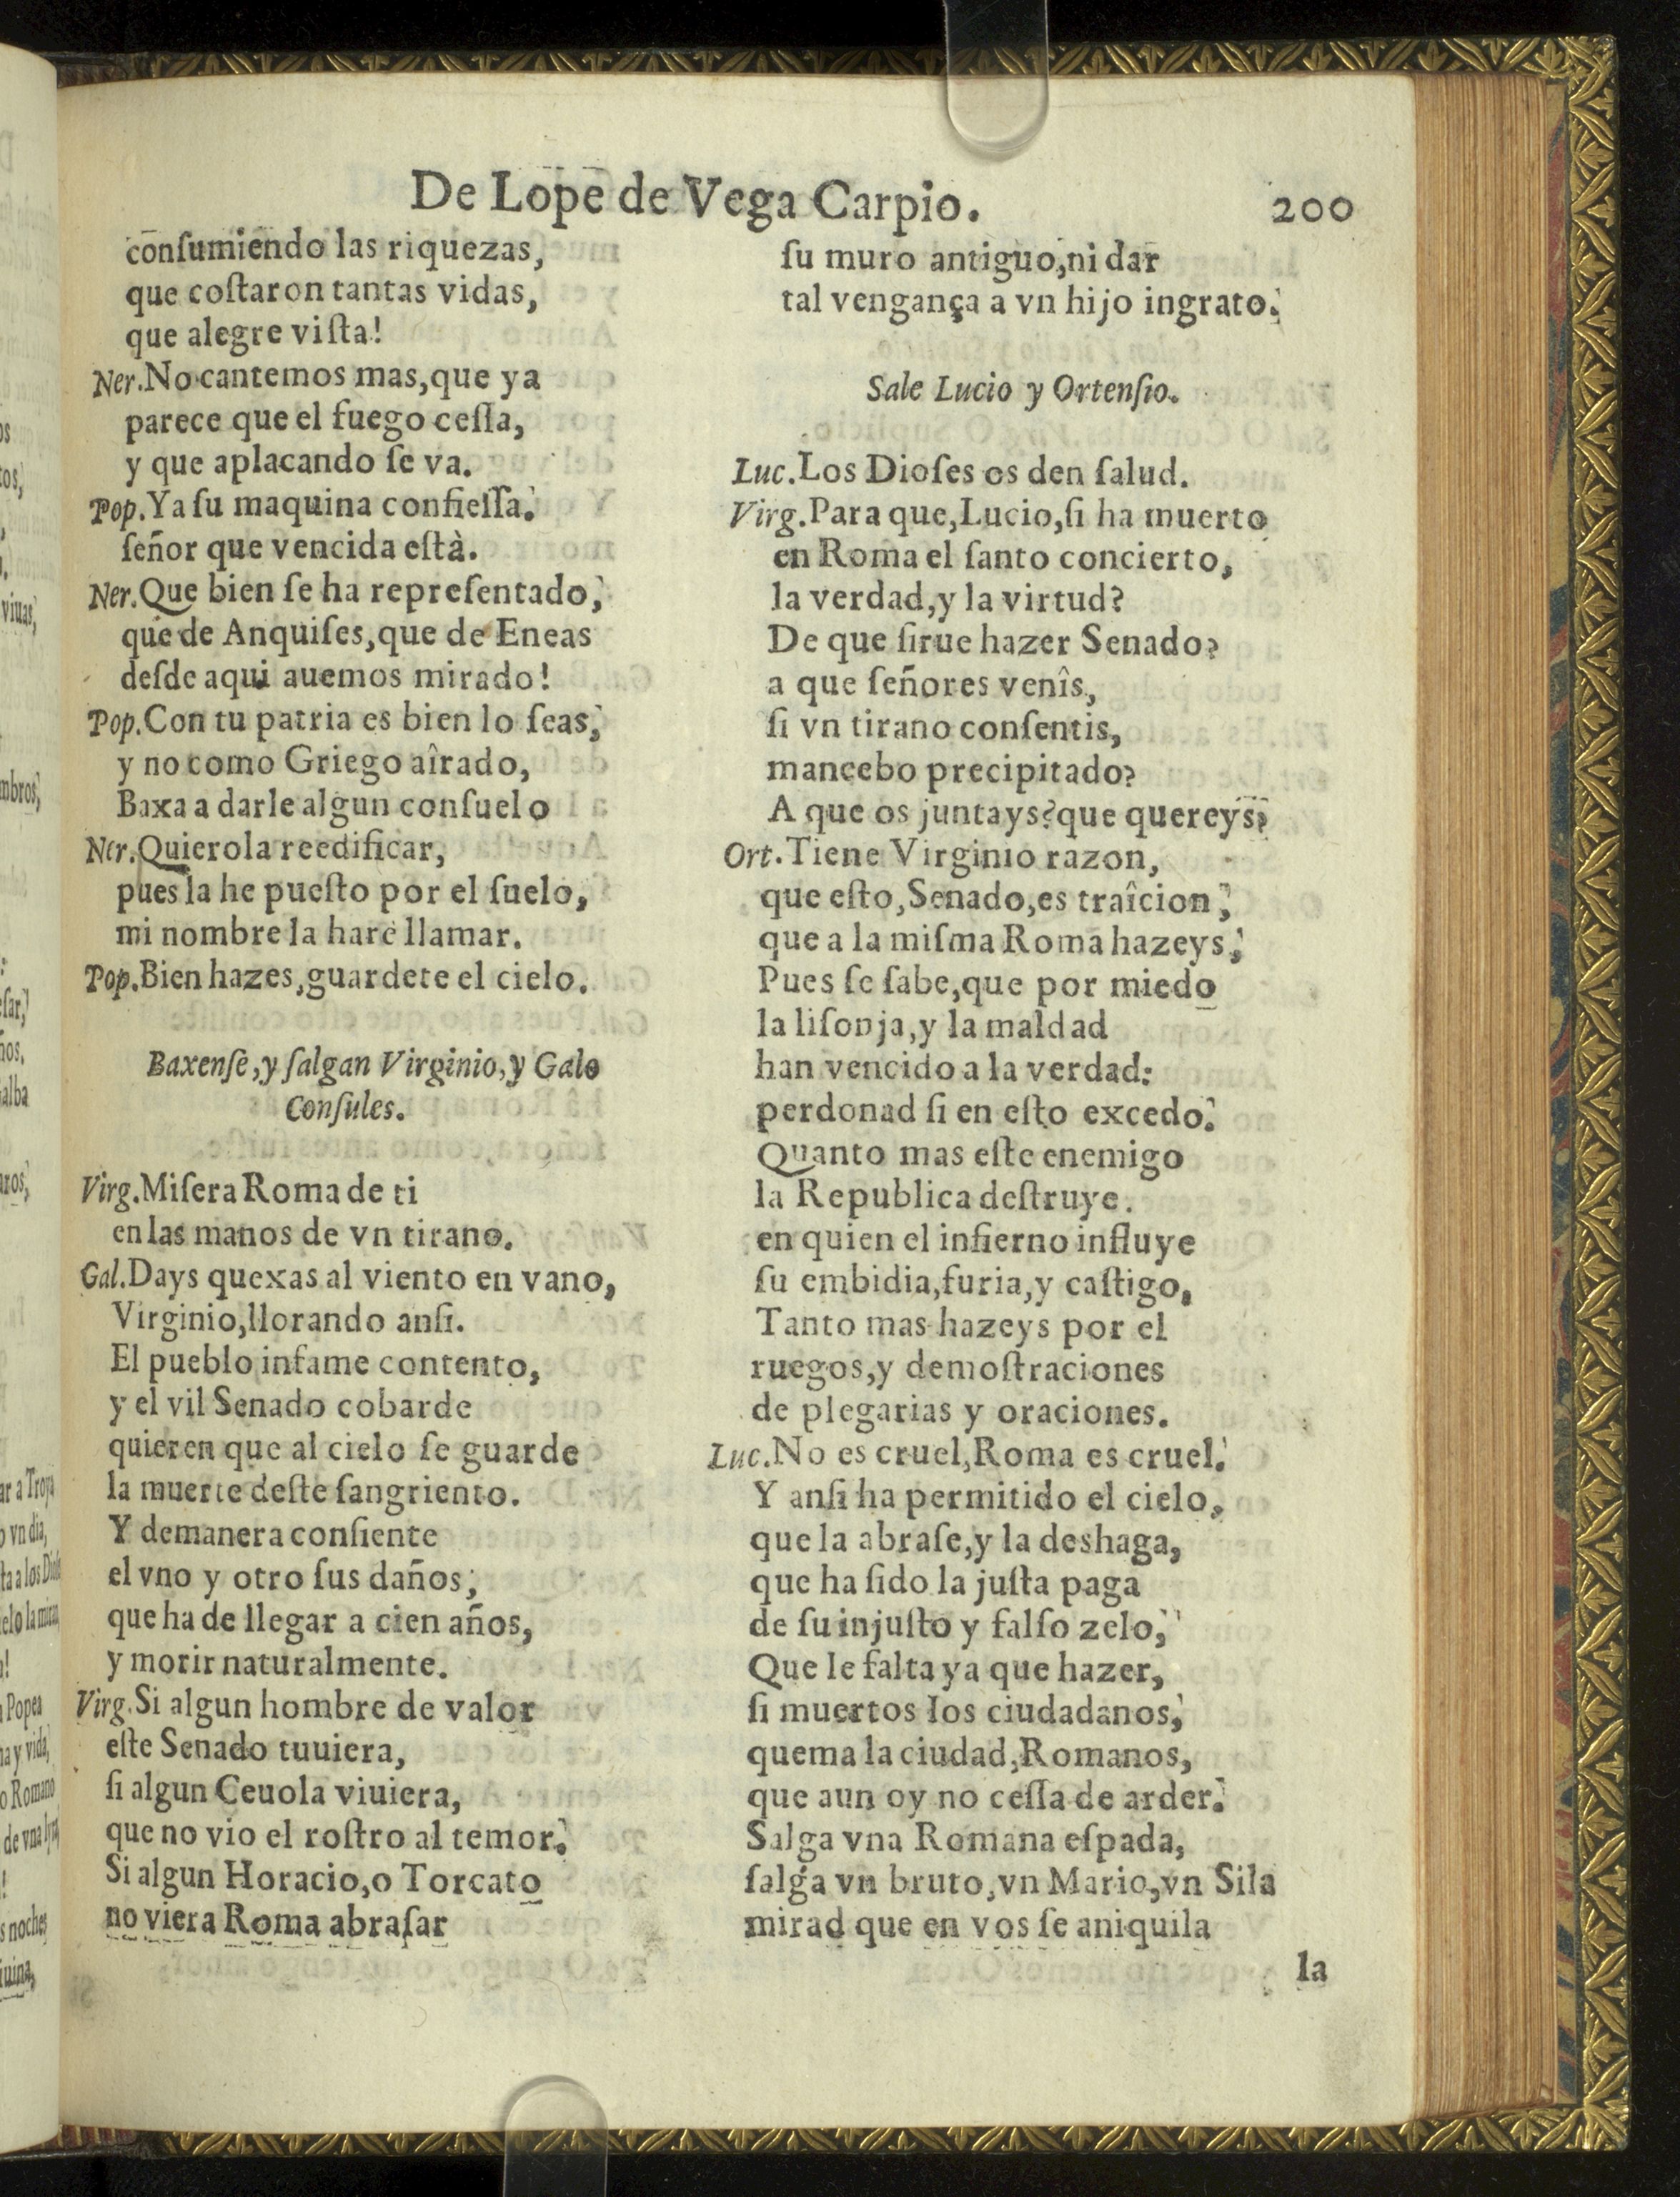 De Lope de Vega Carpio.
200
conſumiendo las riquezas,
que coſtaron tantas vidas,
que alegre viſta!
Ner. No cantemos mas, que ya
parece que el fuego ceſſa,
y que aplacando ſe va.
Pop. Ya ſu maquina confieſſa.
ſeñor que vencida eſtà.
Ner. Que bien ſe ha repreſentado,
que de Anquiſes, que de Eneas
deſde aqui auemos mirado!
Pop. Con tu patria es bien lo ſeas,
y no como Griego aîrado,
Baxa a darle algun conſuelo
Ner. Quierola reedificar,
pues la he pueſto por el ſuelo,
mi nombre la harè llamar.
Pop. Bien hazes, guardete el cielo.
Baxenſe, y ſalgan Virginio, y Galo
Conſules.
Virg. Miſera Roma de ti
en las manos de vn tirano.
Gal. Days quexas al viento en vano,
Virginio, llorando anſi.
El pueblo infame contento,
y el vil Senado cobarde
quieren que al cielo ſe guarde
la muerte deſte ſangriento.
Y demanera conſiente
el vno y otro ſus daños,
que ha de llegar a cien años,
y morir naturalmente.
Virg. Si algun hombre de valor
eſte Senado tuuiera,
ſi algun Ceuola viuiera,
que no vio el roſtro al temor.
Si algun Horacio, o Torcato
no viera Roma abraſar
ſu muro antiguo, ni dar
tal vengança a vn hijo ingrato.
Sale Lucio y Ortenſio.
Luc. Los Dioſes os den ſalud.
Virg. Para que, Lucio, ſi ha muerto
en Roma el ſanto concierto,
la verdad, y la virtud?
De que ſirue hazer Senado?
a que ſeñores venîs,
ſi vn tirano conſentis,
mancebo precipitado?
A que os juntays? que quereys?
Ort. Tiene Virginio razon,
que eſto, Senado, es traîcion,
que a la miſma Roma hazeys,
Pues ſe ſabe, que por miedo
la liſonja, y la maldad
han vencido a la verdad:
perdonad ſi en eſto excedo.
Quanto mas eſte enemigo
la Republica deſtruye.
en quien el infierno influye
ſu embidia, furia, y caſtigo,
Tanto mas hazeys por el
ruegos, y demoſtraciones
de plegarias y oraciones.
Luc. No es cruel, Roma es cruel.
Y anſi ha permitido el cielo,
que la abraſe, y la deshaga,
que ha ſido la juſta paga
de ſu injuſto y falſo zelo,
Que le falta ya que hazer,
ſi muertos los ciudadanos,
quema la ciudad, Romanos,
que aun oy no ceſſa de arder.
Salga vna Romana eſpada,
ſalga vn bruto, vn Mario, vn Sila
mirad que en vos ſe aniquila
la